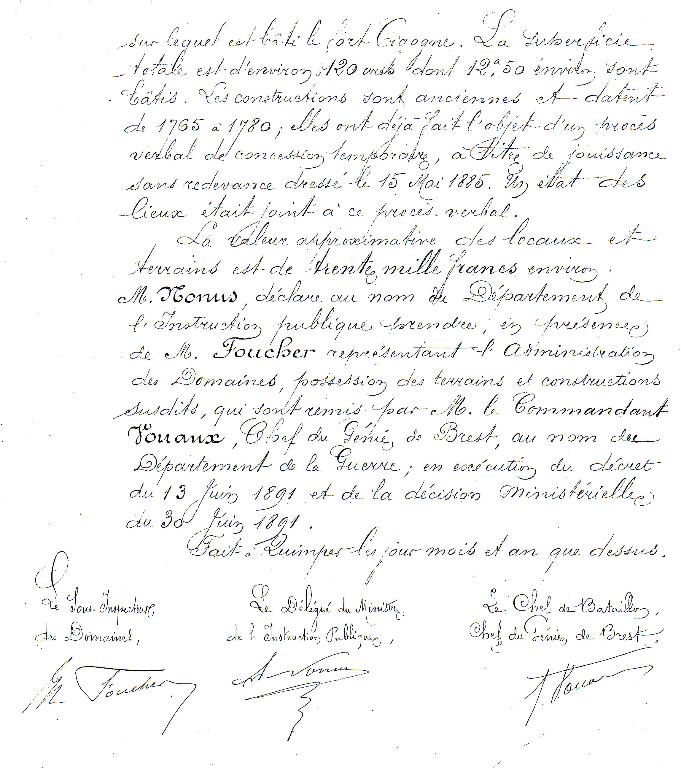 sur lequel est bâti le fort Cigogne. La superficie
totale est d'environ 120 ares dont 12ª,50 environ sont
bâtis. Les constructions sont anciennes et datent
de 1765 à 1780; elles ont déjà fait l'objet d'un procès
verbal de concession temporaire, à titre de jouissance
sans redevance dressé le 15 Mai 1885. Un état des
lieux était joint à ce procès-verbal.
La valeur approximative des locaux et
terrains est de trente mille francs environ.
M. Nonus, déclare au nom du Département de
l'Instruction publique prendre, en présence
de M. Foucher représentant l'Administration
des Domaines, possession des terrains et constructions
susdits, qui sont remis par M. le Commandant
Vouaux, Chef du Génie, de Brest, au nom du
Département de la Guerre; en exécution du décret
du 13 Juin 1891 et de la décision Ministérielle
du 30 Juin 1891.
Fait à Quimper les jour mois et an que dessus.
Le Sous-Inspecteur
des Domaines,
Foucher
Le Délégué du Ministre
de l'Instruction Publique,
Nonus
Le Chef de Bataillon,
Chef du Génie, de Brest,
Vouaux